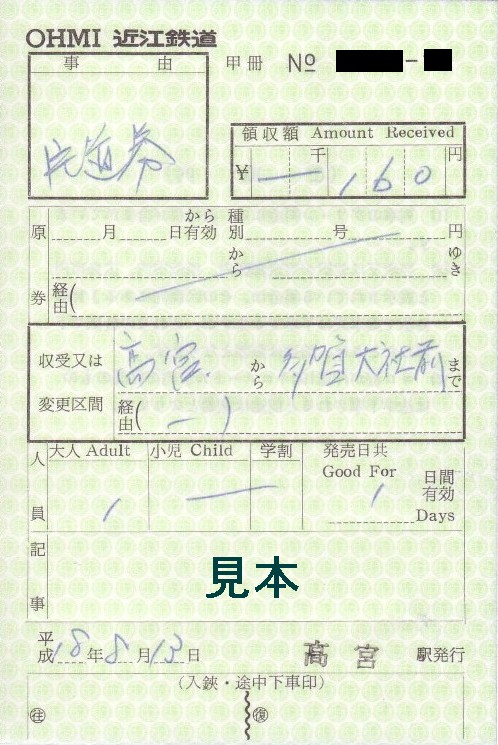 OHMI 近江鉄道
事由 甲冊 №
片道券
領収額 Amount Received
¥ 一 千 160 円
原券
から 種
月 日有効 別 号 円
から ゆき
経由(
収受又は
変更区間
高宮 から 多賀大社前 まで
経由( 一 )
人員
大人 Adult 小児 Child 学割 発売日共
Good For 日間
1 一 1 有効
Days
記事
見本
平成 18 年 8 月 13 日 高宮 駅発行
(入鋏・途中下車印)
往 復